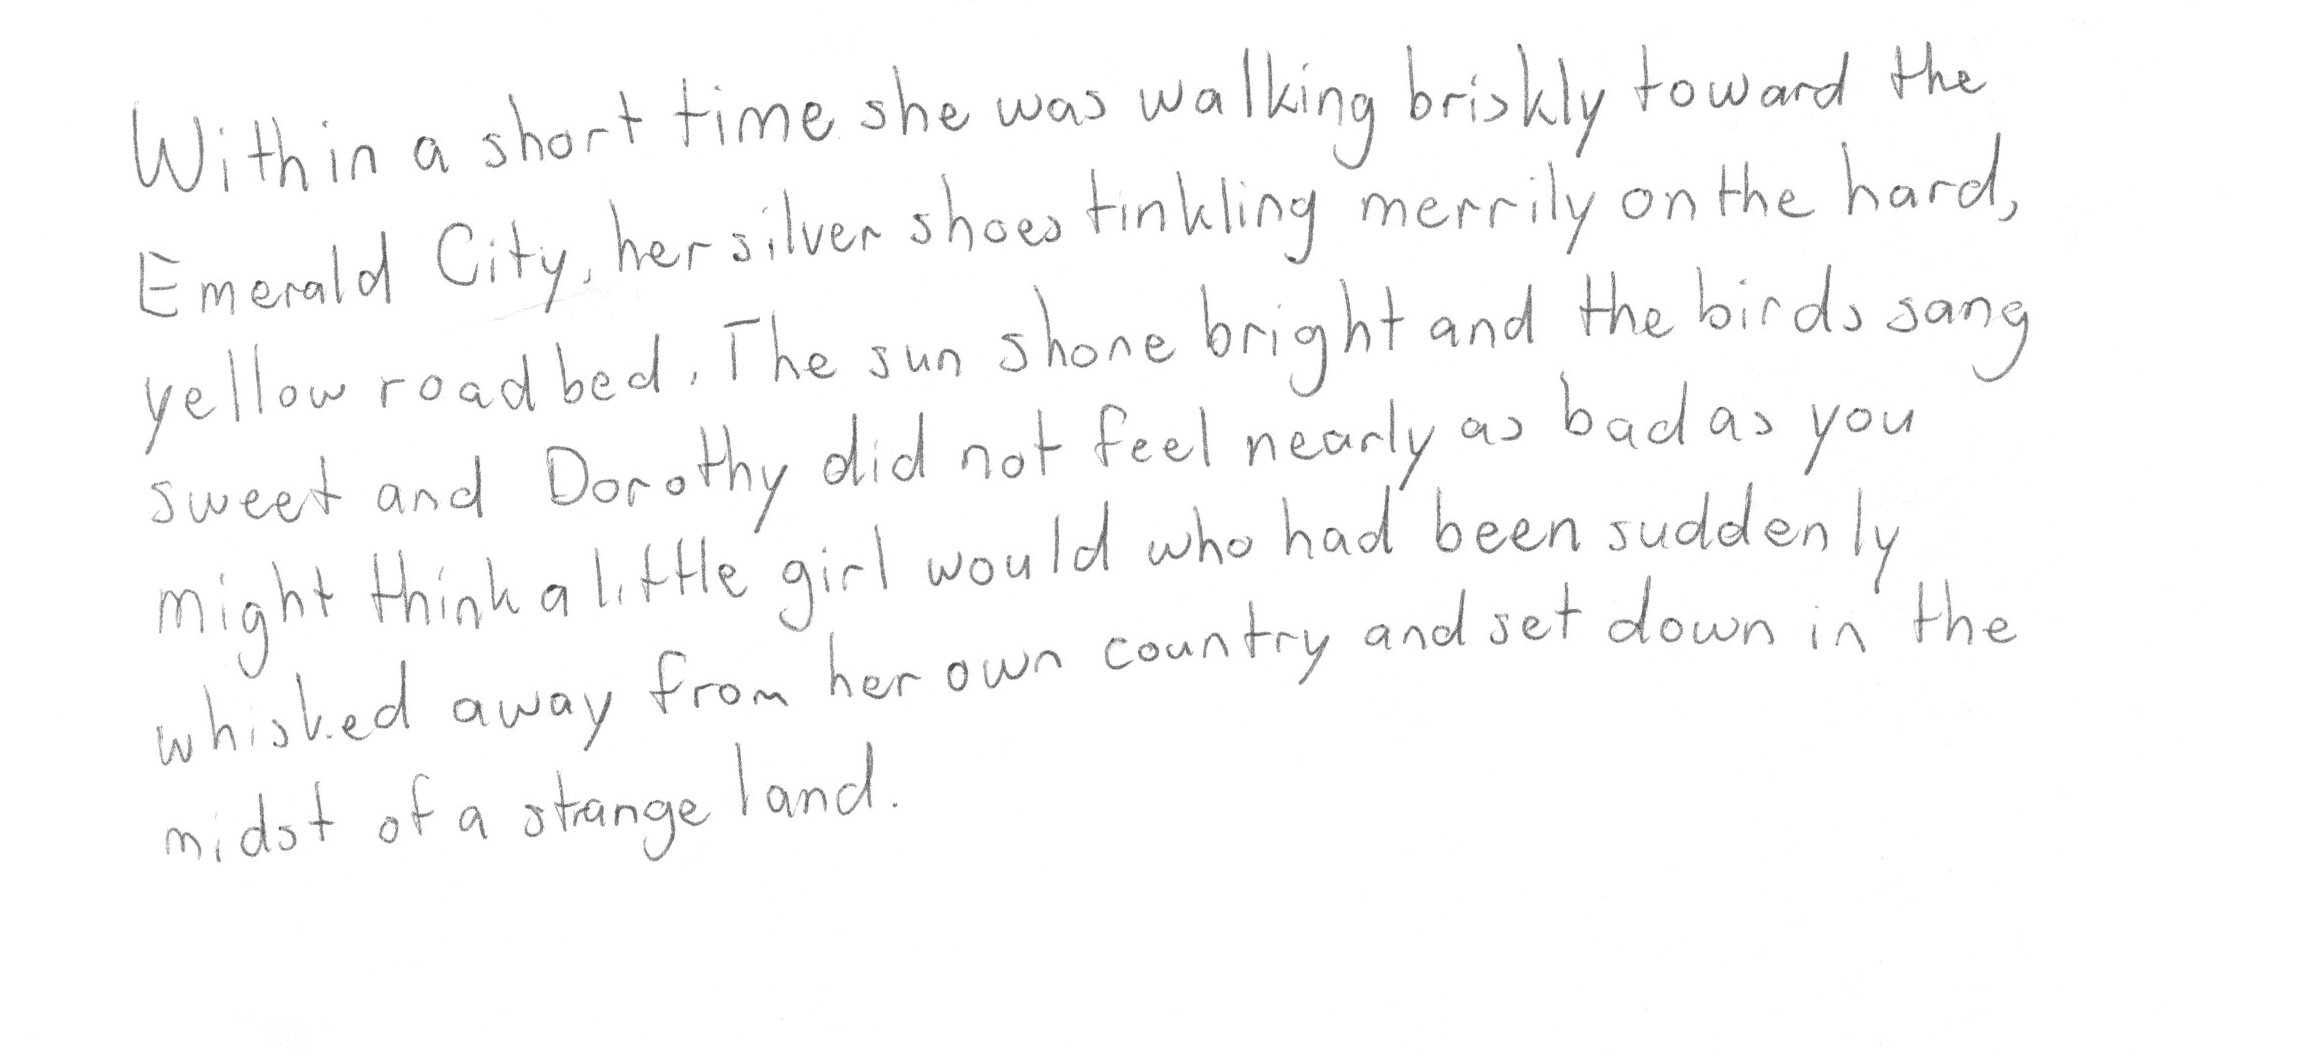 Within a short time she was walking briskly toward the
Emerald City, her silver shoes tinkling merrily on the hard,
yellow roadbed. The sun shone bright and the birds sang
sweet and Dorothy did not feel nearly as bad as you
might think a little girl would who had been suddenly
whisked away from her own country and set down in the
midst of a stange land.